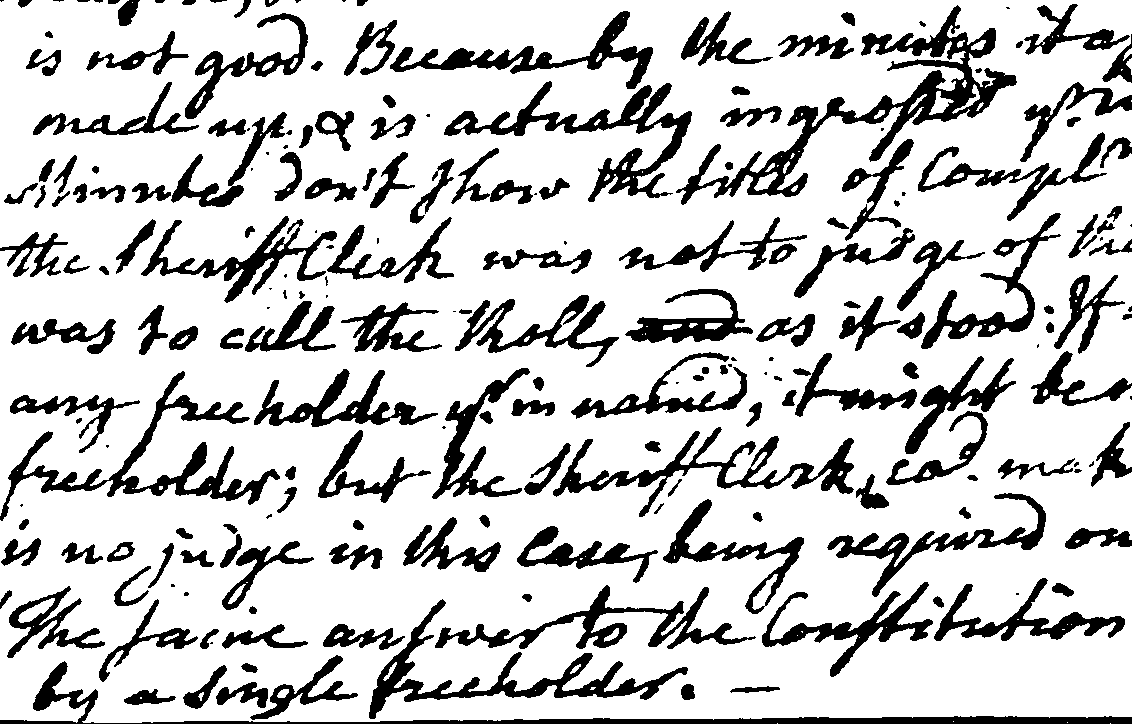 is not good. Because by the minutes it
made up, & is actually ingrossed yr.
Minutes don't show the titles of Compl
the Sheriff Clerk was not to judge of
was to call the Rholl, and as it stood: If
any freeholder yr. in named, it might be
freeholder; but the Sheriff Clerk, cod. mak
is no judge in this Case, being required on
The same answer to the Constitution
by a single freeholder. —